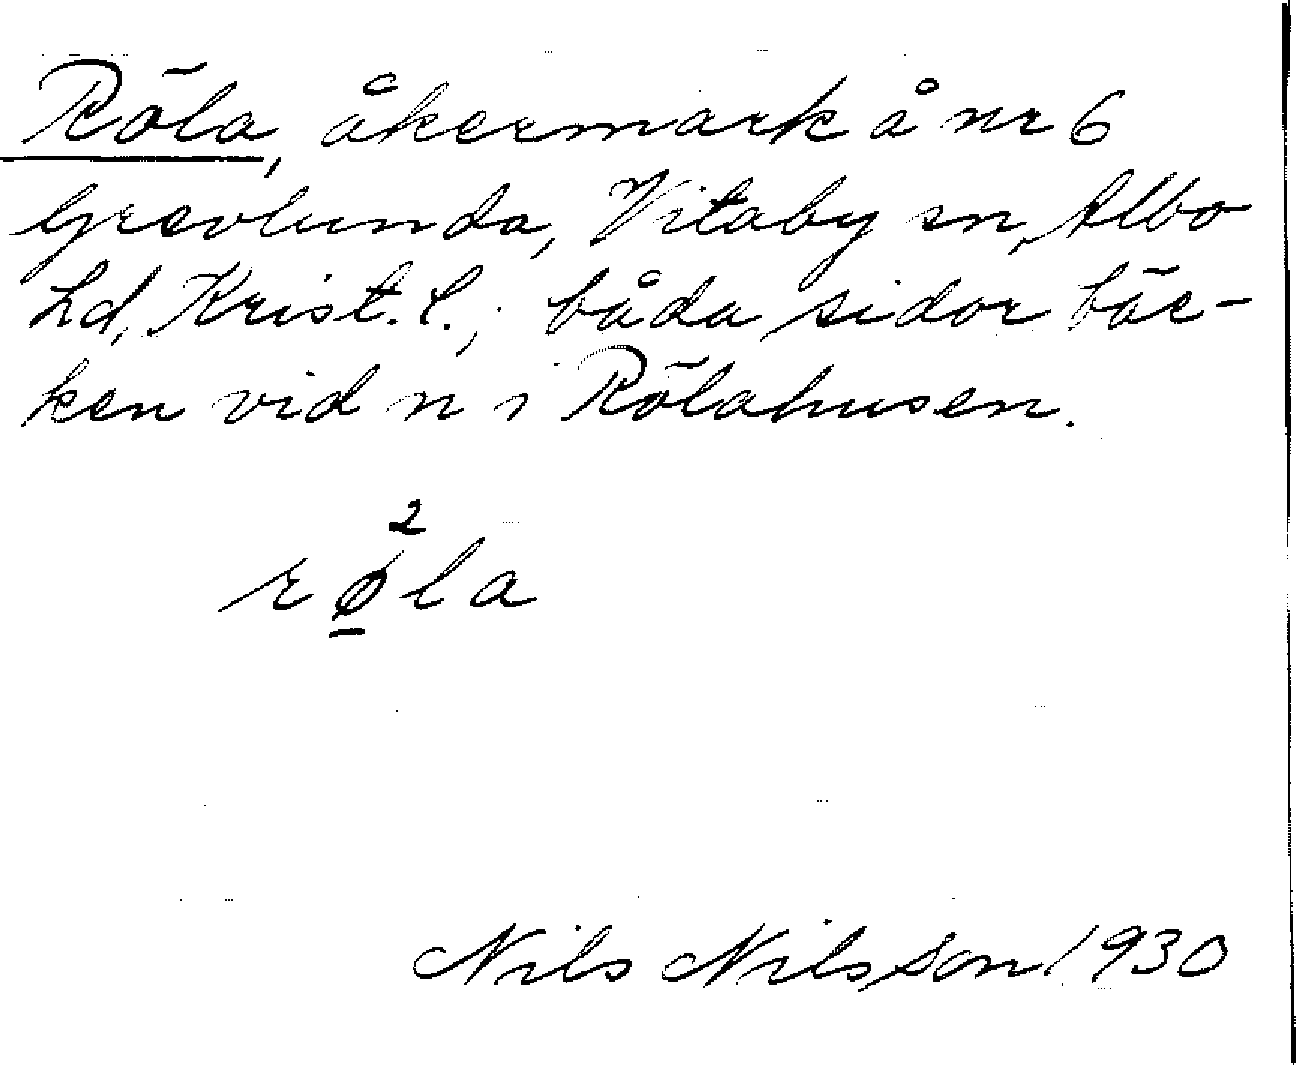 Röla, åkermark å nr 6
Grevlunda, Vitaby sn, Albo
hd, Krist. l., båda sidor bäc-
ken vid n i Rölahusen.
2
rø̱la
Nils Nilsson 1930